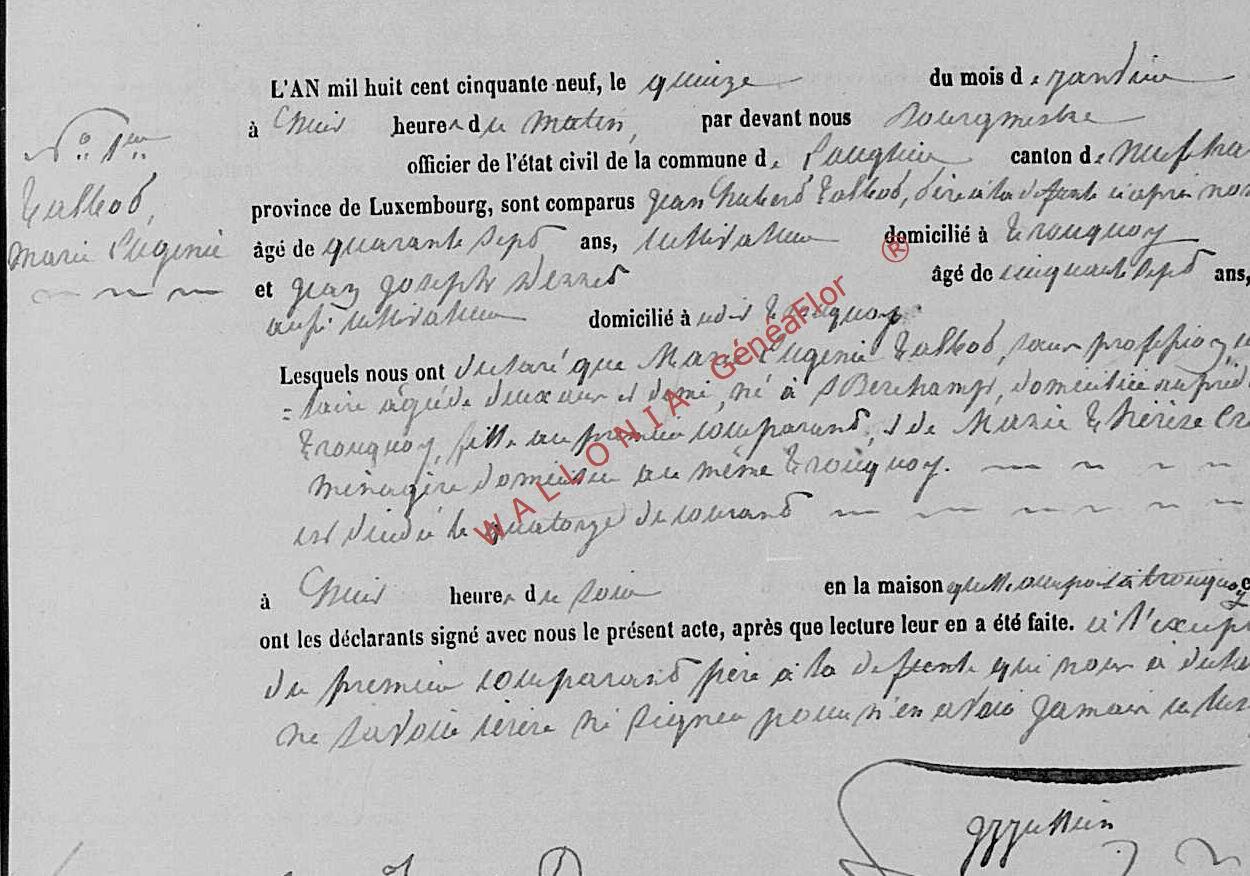 L'AN mil huit cent cinquante neuf, le quinze du mois de janvier
à huit heures du matin, par devant nous Bourgmestre
N° 1er
officier de l'état civil de la commune de Longlier canton de Neufcha
Talbot,
province de Luxembourg, sont comparus Jean Hubert Talbot, père à la deffunte ci après nom
Marie Eugenie
âgé de quarante sept ans, cultivateur domicilié à Tronquoy
et Jean Joseph âgé de cinquante sept ans,
aussi cultivateur domicilié à Tronquoy
Lesquels nous ont déclaré que Marie Eugenie Talbot, sans profession,
âgée de deux ans et demi, né à Berchamps, domiciliée au
Tronquoy, fille au premier comparant, & de Marie Thérèse
ménagère domiciliée au même Tronquoy.
est décédée le quatorze du courant
à huit heures du soir en la maison qu'elle occupait à tronquoy e
ont les déclarants signé avec nous le présent acte, après que lecture leur en a été faite. à l'excep
du premier comparant père à la deffunte qui nous à décla
ne savoir écrire ni signer pour n'en avoir jamais
WALLONIA GénéaFlor ®